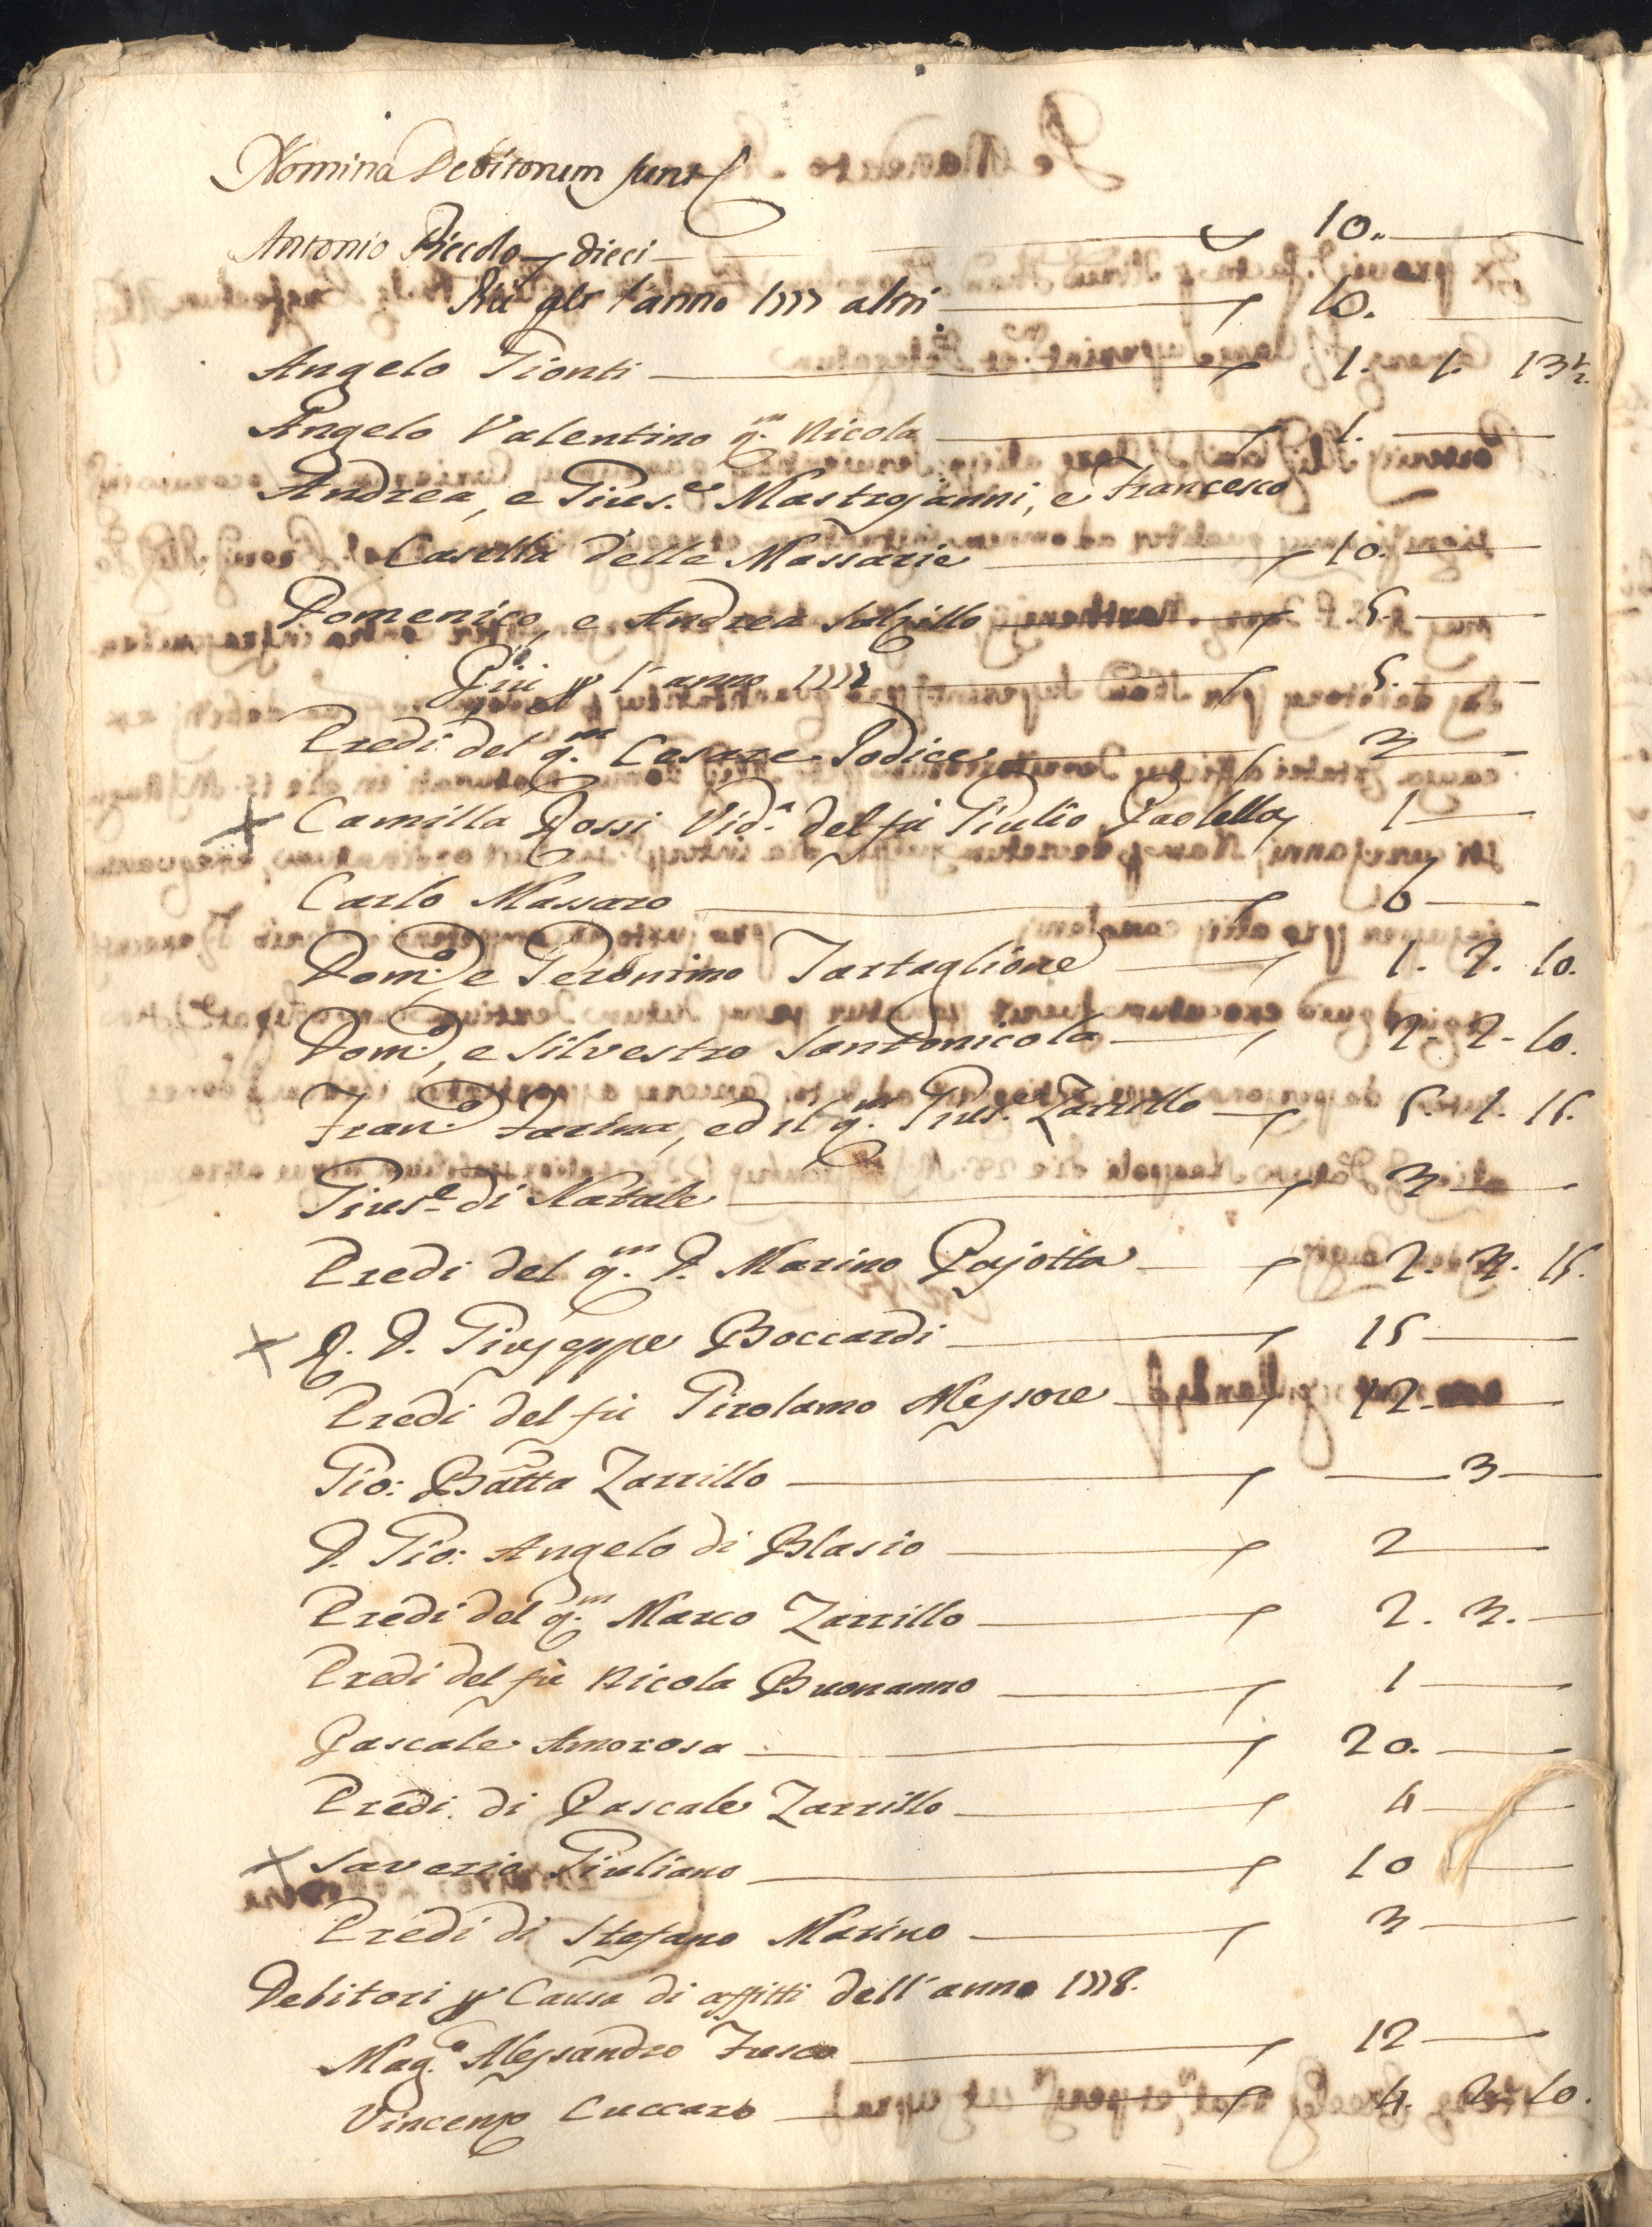 Nomina Debitorum sunt
Antonio Piccolo dieci 10.
Più per l'anno 1777 altri 10.
Angelo Gionti 1. 1. 13½
Angelo Valentino q.m Nicola 1.
Andrea, e Gius.e Mastrojanni, e Francesco
Casella delle Massarie 10.
Domenico, e Andrea Salzillo 5.
Più p l'anno 1777 5.
Eredi del q.m Cesare Jodice 3
x Camilla Rossi Vid.a del fù Giulio Paolella 1
Carlo Massaro 6
Dom.o e Geronimo Tartaglione 1. 2. 10.
Dom.o, e Silvestro Santonicola 2. 2. 10.
Fran.o Farina, ed il q.m Gius.e Zarrillo 5. 1. 15.
Gius.e di Natale 3
Eredi del q.m D. Marino Pajotta 2. 3. 15.
x R. D. Giuseppe Boccardi 15
Eredi del fù Girolamo Messore 12.
Gio: Batta Zarrillo 3
D. Gio: Angelo di Blasio 2
Eredi del q.m Marco Zarrillo 2. 3.
Eredi del fù Nicola Buonanno 1
Pascale Amorosa 20.
Eredi di Pascale Zarrillo 4
x Saverio Giuliano 10
Eredi di Stefano Marino 3
Debitori p Causa di affitti dell'anno 1778.
Mag.o Alessandro Fusco 12
Vincenzo Cuccaro 4. 2. 10.